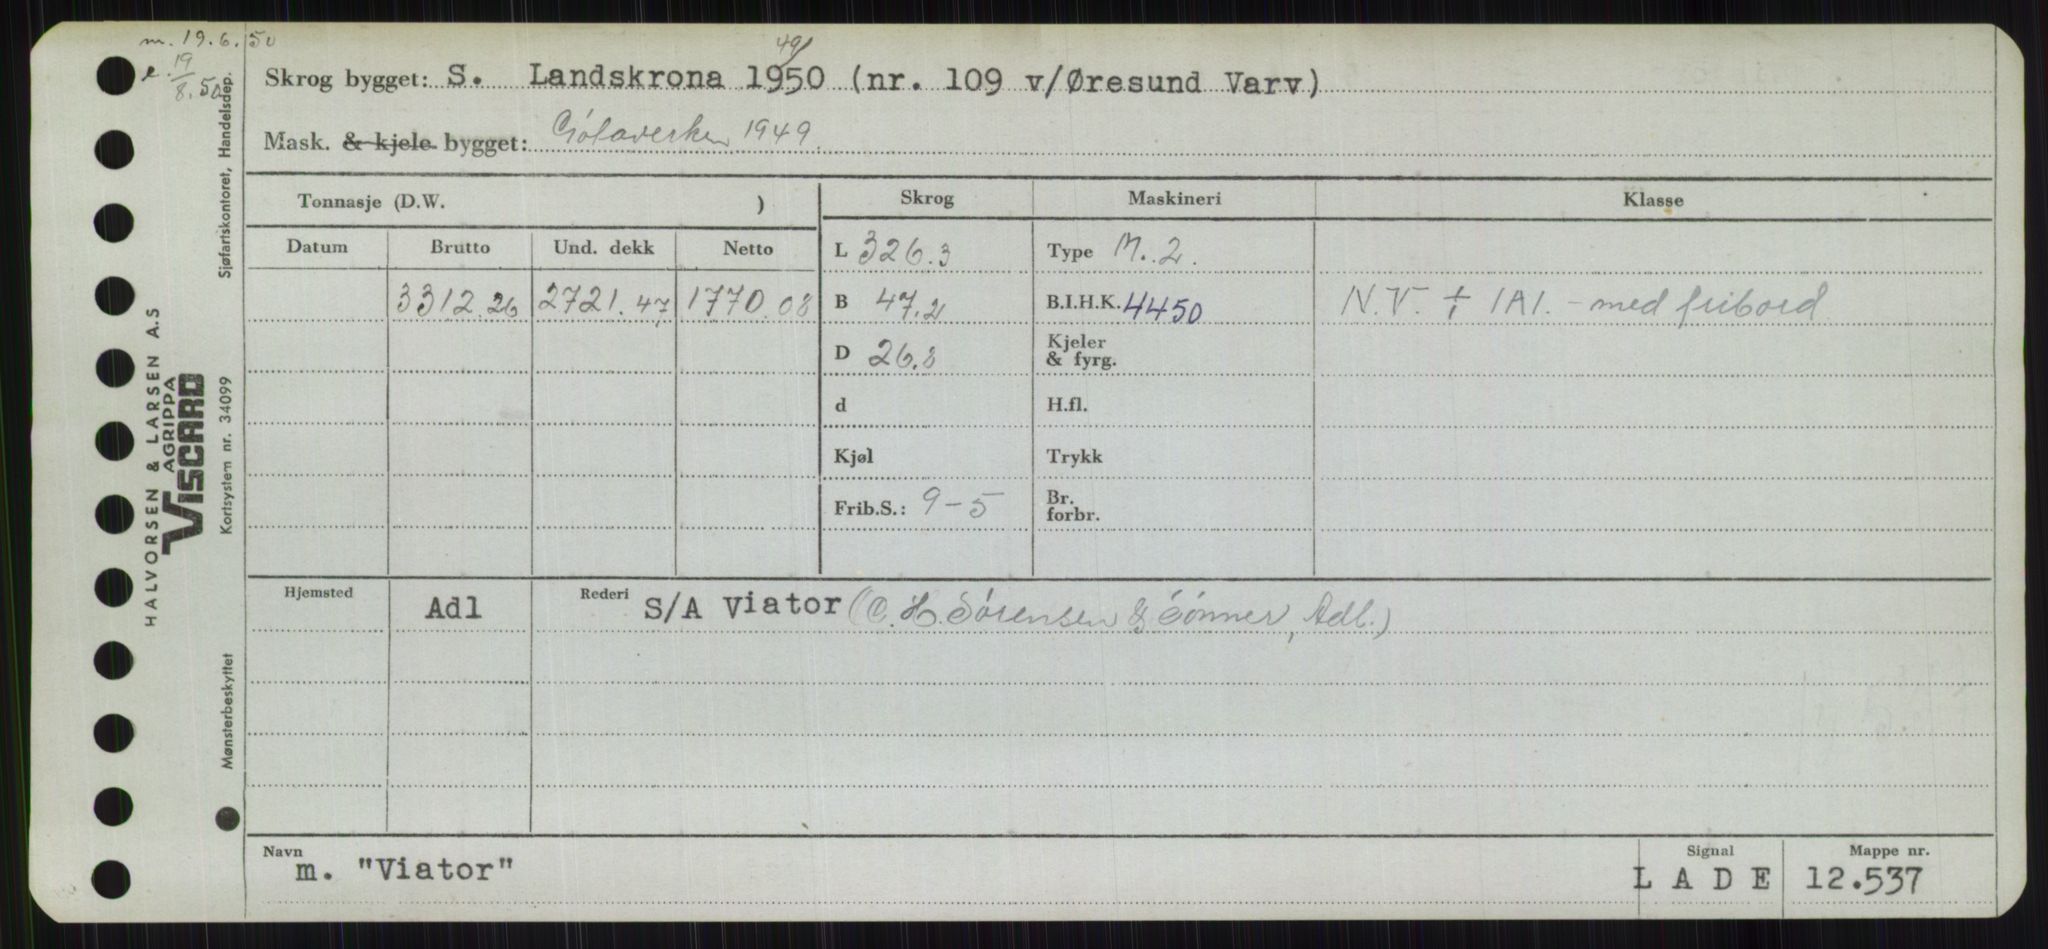 m. 19.6.50
e. 19/8.50
49/
Skrog bygget: S. Landskrona 1950 (nr. 109 v/Øresund Varv)
Mask. & kjele bygget: Götaverken 1949.
Tonnasje (D.W. )
Skrog Maskineri Klasse
Datum Brutto Und. dekk Netto
L 326.3 Type M. 2.
3312.26 2721.47 1770.08 B 47.2 B.I.H.K. 4450 N.V. + 1A1. - med fribord
D 26.8 Kjeler & fyrg.
d H.fl.
Kjøl Trykk
Frib.S.: 9-5 Br. forbr.
Hjemsted Adl Rederi S/A Viator (C. H. Sørensen & Sønner, Adl.)
Navn m. "Viator" Signal L A D E Mappe nr. 12.537
HALVORSEN & LARSEN A.S
AGRIPPA
VISCARD
Mønsterbeskyttet Kortsystem nr. 34099 Sjøfartskontoret, Handelsdep.